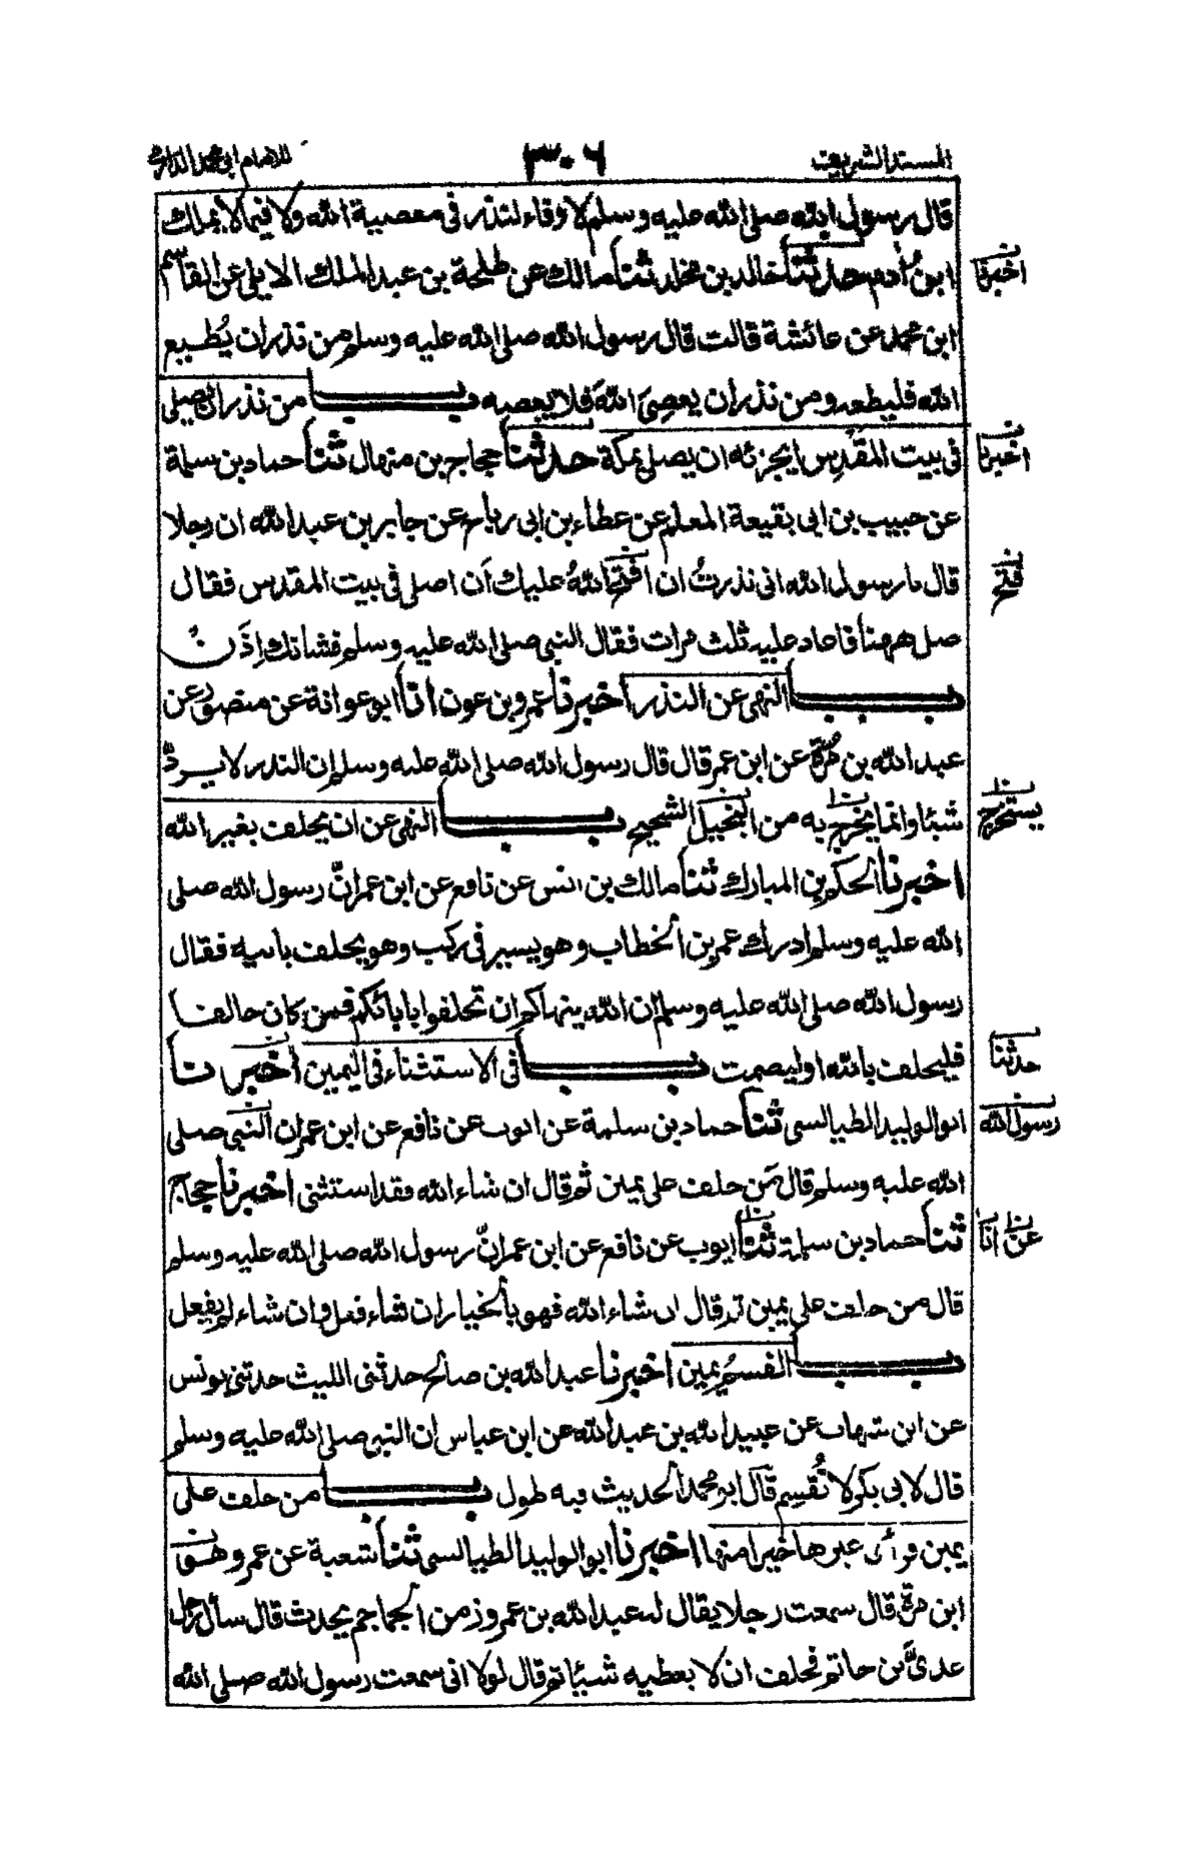 المسند الشريف ٣٠٦ للامام ابی محمد الدارمی
قال رسول الله صلی الله علیه وسلم لا وفاء لنذر فی معصیة الله ولا فیما لا یملك
ابنُ اٰدم حدثنا خالد بن مخلد ثنا مالك عن طلحة بن عبد الملك الایلی عن القاسم
اخبرنا
ابن محمد عن عائشة قالت قال رسول الله صلی الله علیه وسلم من نذر ان یُطیع
الله فلیطعه ومن نذر ان یعصِیَ اللهَ فلا یعصیه باب من نذر ان یصلی
فی بیت المقدِس ایجزئه ان یصلی بمكة حدثنا حجاج بن منهال ثنا حماد بن سلمة
اخبرنا
عن حبیب بن ابی بقیعة المعلم عن عطاء بن ابی رباح عن جابر بن عبد الله ان رجلا
قال یا رسول الله انی نذرتُ ان افتح اللهُ علیك اَن اصلی فی بیت المقدس فقال
فتح
صل ههنا فاعاد علیه ثلث مرات فقال النبی صلی الله علیه وسلم فشانك اِذَنْ
باب النهی عن النذر اخبرنا عمرو بن عون انا ابو عوانة عن منصور عن
عبد الله بن مُرّة عن ابن عمر قال قال رسول الله صلی الله علیه وسلم ان النذر لا یردّ
شیئا وانما یخرج به من البخیل الشحیح باب النهی عن ان یحلف بغیر الله
یستخرج
اخبرنا الحكم بن المبارك ثنا مالك بن انس عن نافع عن ابن عمر انّ رسول الله صلی
الله علیه وسلم ادرك عمر بن الخطاب وهو یسیر فی ركب وهو یحلف بابیه فقال
رسول الله صلی الله علیه وسلم ان الله ینهاكم ان تحلفوا بابائكم فمن كان حالفا
فلیحلف بالله او لیصمت باب فی الاستثناء فی الیمین اخبرنا
حدثنا
ابو الولید الطیالسی ثنا حماد بن سلمة عن ایوب عن نافع عن ابن عمر ان النبی صلی
رسول الله
الله علیه وسلم قال مَن حلف علی یمین ثم قال ان شاء الله فقد استثنی اخبرنا حجاج
ثنا حماد بن سلمة ثنا ایوب عن نافع عن ابن عمر انّ رسول الله صلی الله علیه وسلم
عن انا
قال من حلف علی یمین ثم قال ان شاء الله فهو بالخیار ان شاء فعل وان شاء لم یفعل
باب القسمُ یمین اخبرنا عبد الله بن صالح حدثنی اللیث حدثنی یونس
عن ابن شهاب عن عبید الله بن عبد الله عن ابن عباس ان النبی صلی الله علیه وسلم
قال لابی بكر لا تُقسِم قال ابو محمد الحدیث فیه طول باب من حلف علی
یمین فرأی غیرها خیرا منها اخبرنا ابو الولید الطیالسی ثنا شعبة عن عمرو هو
ابن مرة قال سمعت رجلا یقال له عبد الله بن عمرو زمن الجماجم یحدث قال سأل رجل
عدیَّ بن حاتم فحلف ان لا یعطیه شیئا ثم قال لولا انی سمعت رسول الله صلی الله